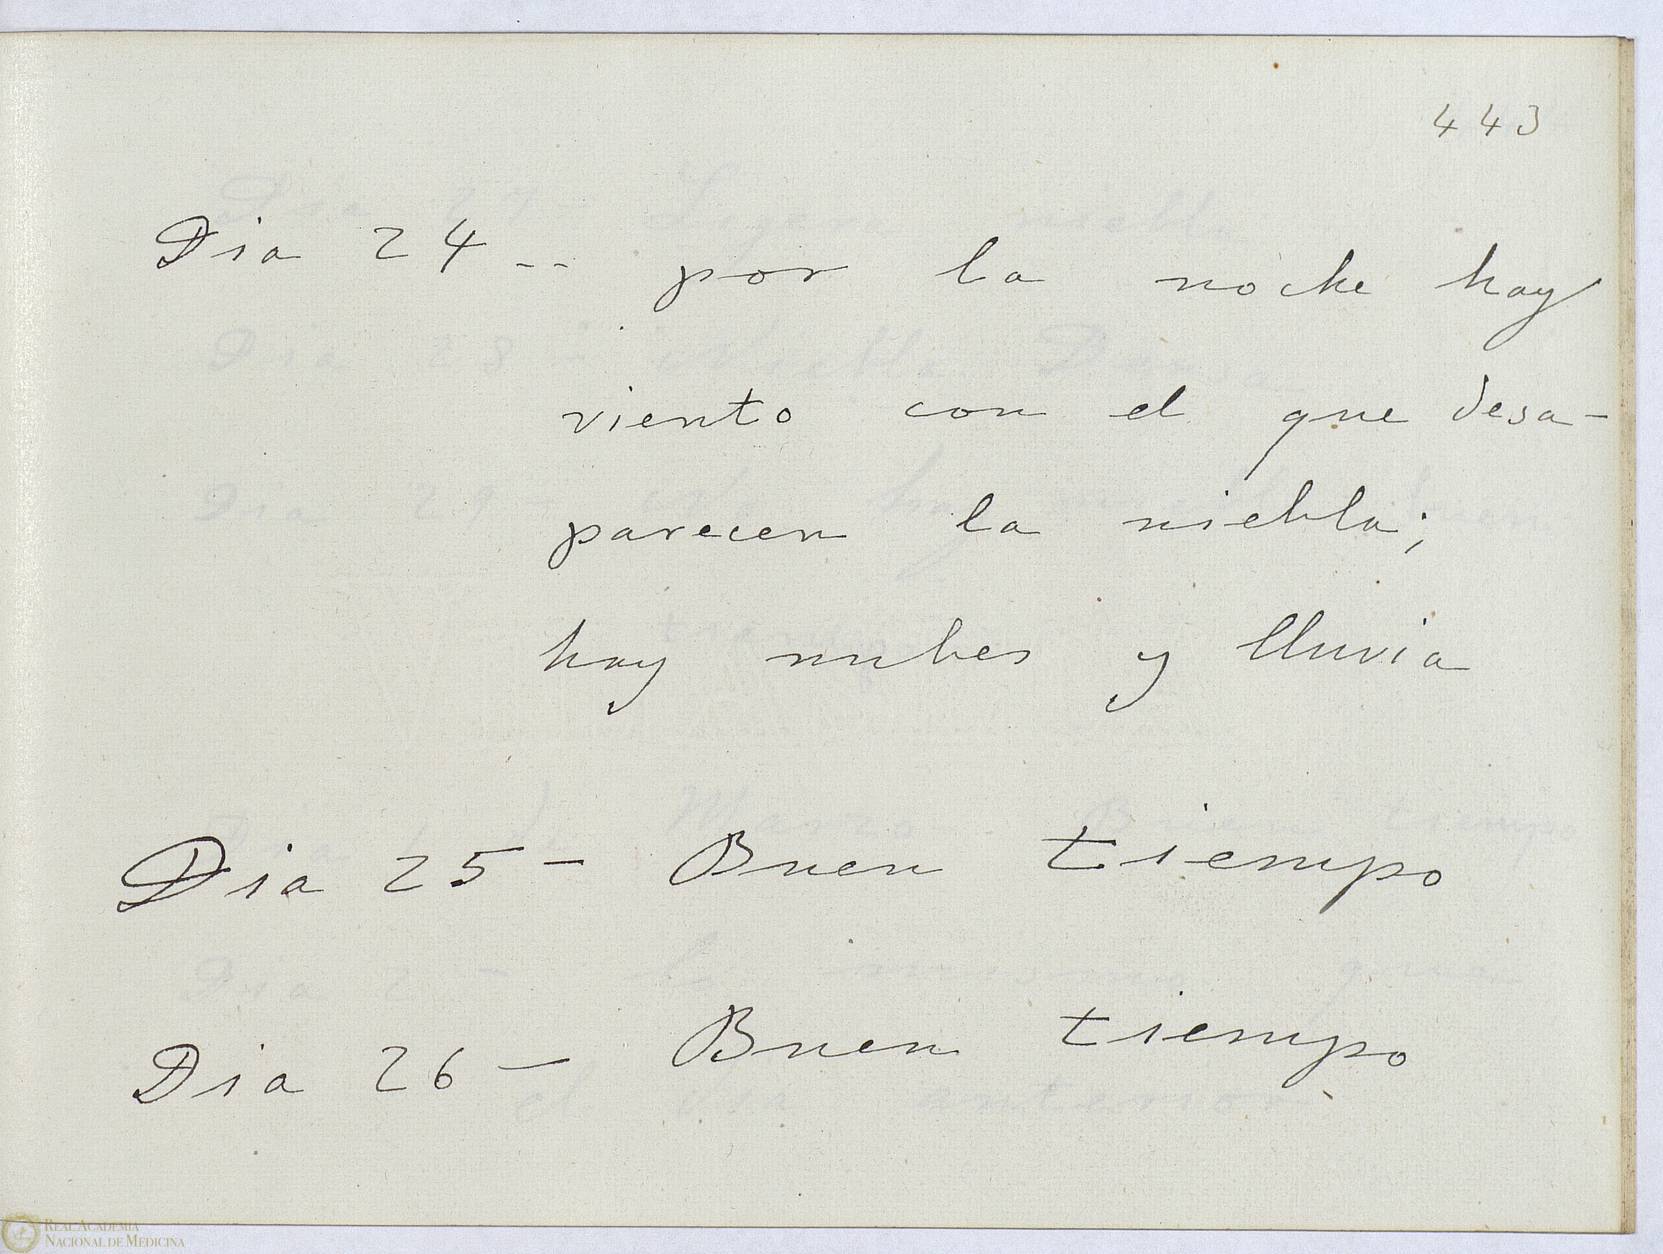 443
Dia 24 -- por la noche hay
viento con el que desa-
parecen la niebla;
hay nubes y lluvia
Dia 25 - Buen tiempo
Dia 26 - Buen tiempo
REAL ACADEMIA
NACIONAL DE MEDICINA